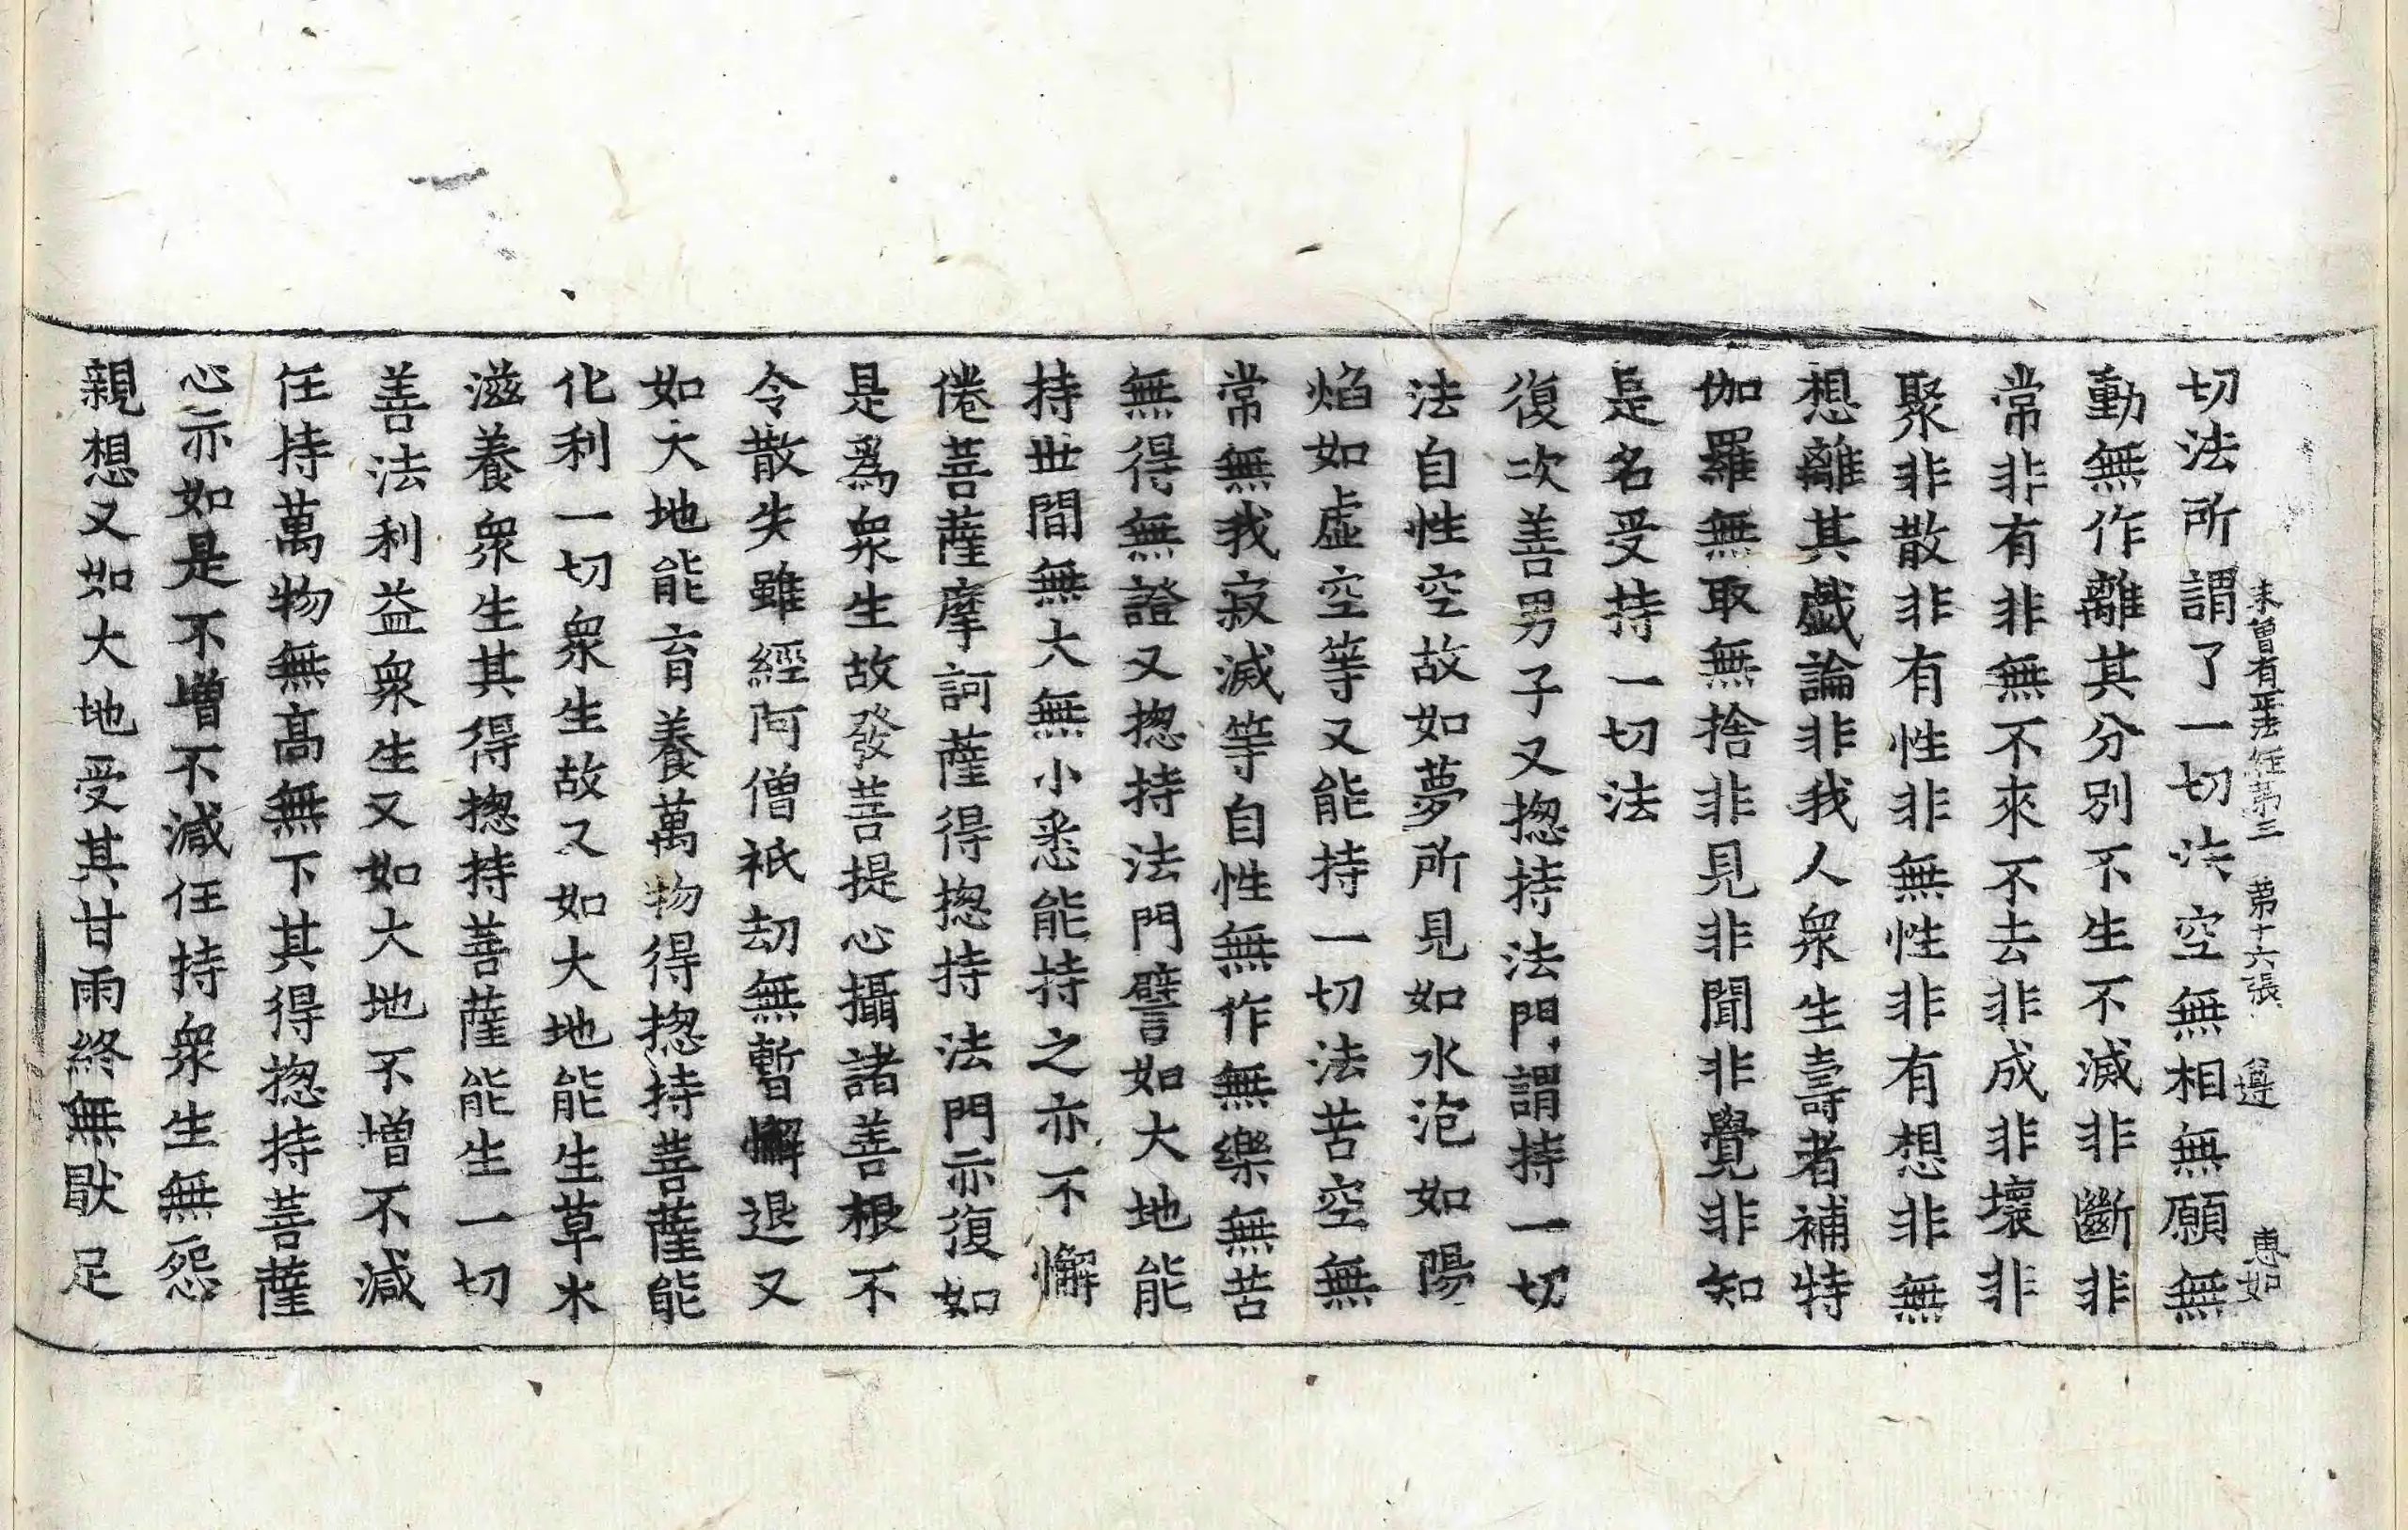 未曾有正法経第三 第十六張 遵 惠如
切法所謂了一切法空無相無願無
動無作離其分別不生不滅非斷非
常非有非無不來不去非成非壞非
聚非散非有性非無性非有想非無
想離其戱論非我人衆生壽者補特
伽羅無取無捨非見非聞非覺非知
是名受持一切法
復次善男子又揔持法門謂持一切
法自性空故如夢所見如水泡如陽
焰如虛空等又能持一切法苦空無
常無我寂滅等自性無作無樂無苦
無得無證又揔持法門譬如大地能
持世間無大無小悉能持之亦不懈
倦菩薩摩訶薩得揔持法門亦復如
是爲衆生故發菩提心攝諸善根不
令散失雖經阿僧祇劫無暫懈退又
如大地能育養萬物得揔持菩薩能
化利一切衆生故又如大地能生草木
滋養衆生其得揔持菩薩能生一切
善法利益衆生又如大地不增不減
任持萬物無高無下其得揔持菩薩
心亦如是不增不減任持衆生無怨
親想又如大地受其甘雨終無猒足